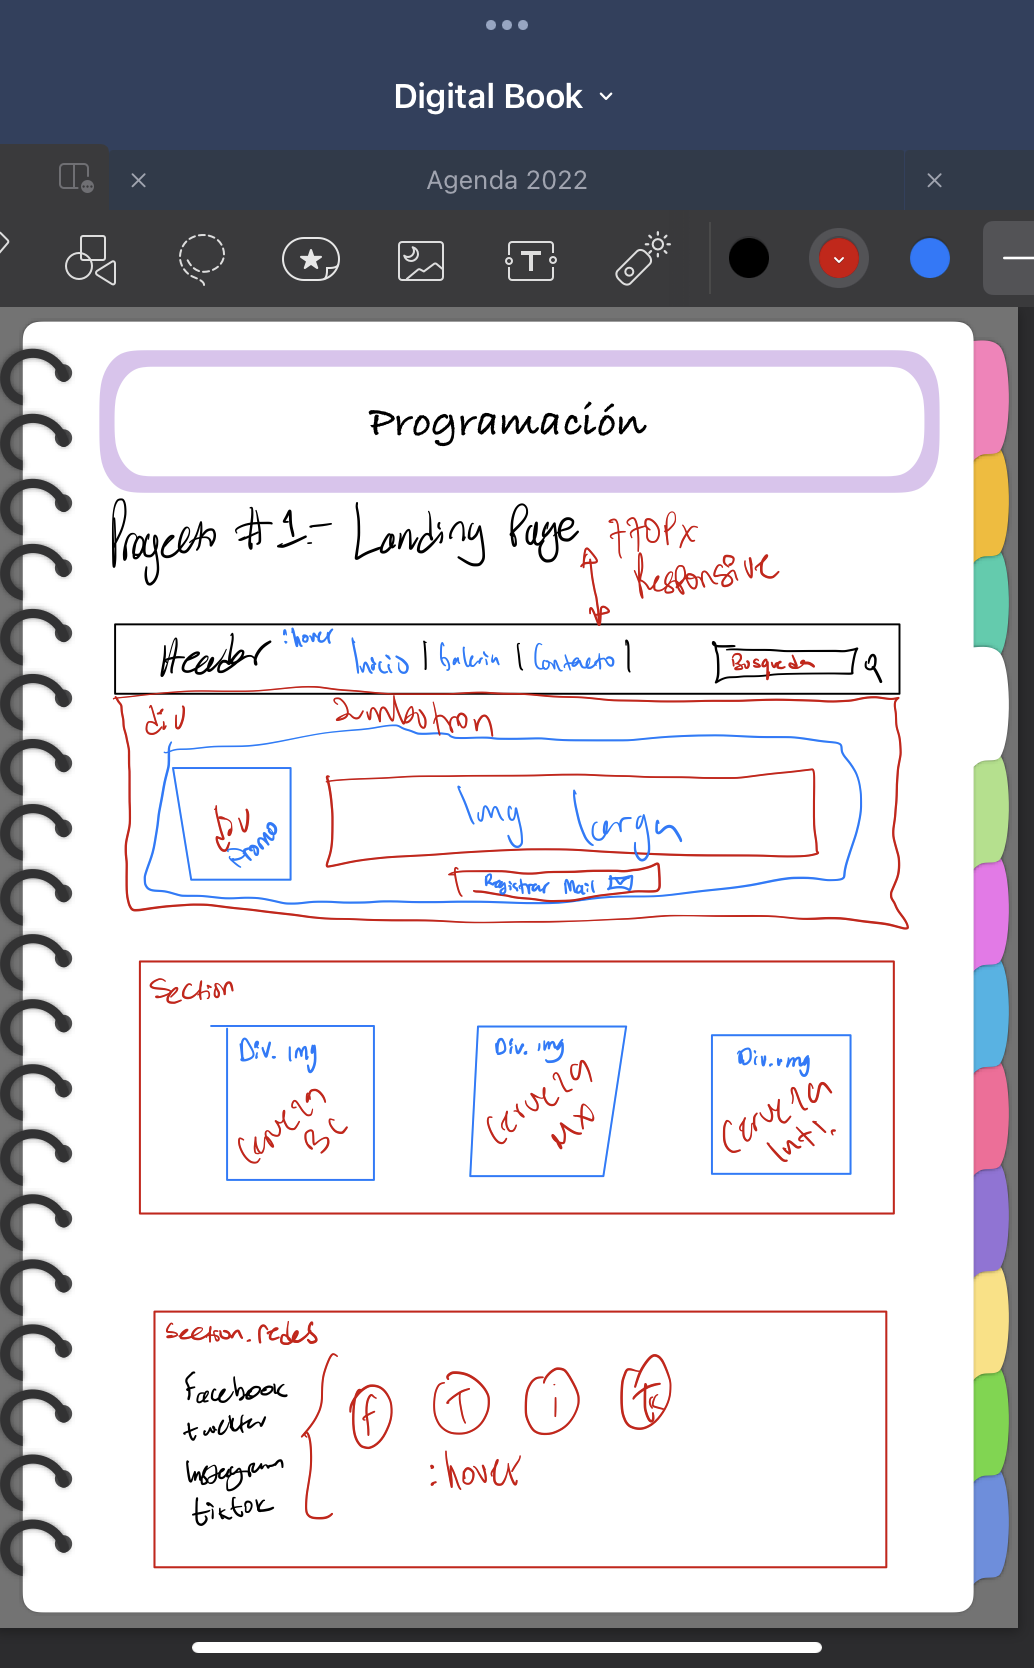 Digital Book
Agenda 2022
T
Programación
Proyecto #1.- Landing Page
770Px
Responsive
Header :hover Inicio | Galeria | Contacto |
Busqueda
div
Promo
Img larga
Registrar Mail
Section
Div. img
Cerveza
BC
Div. img
Cerveza
MX
Div. img
Cerveza
Intl.
Section. redes
Facebook
twitter
Instagram
tiktok
f T i Tk
:hover